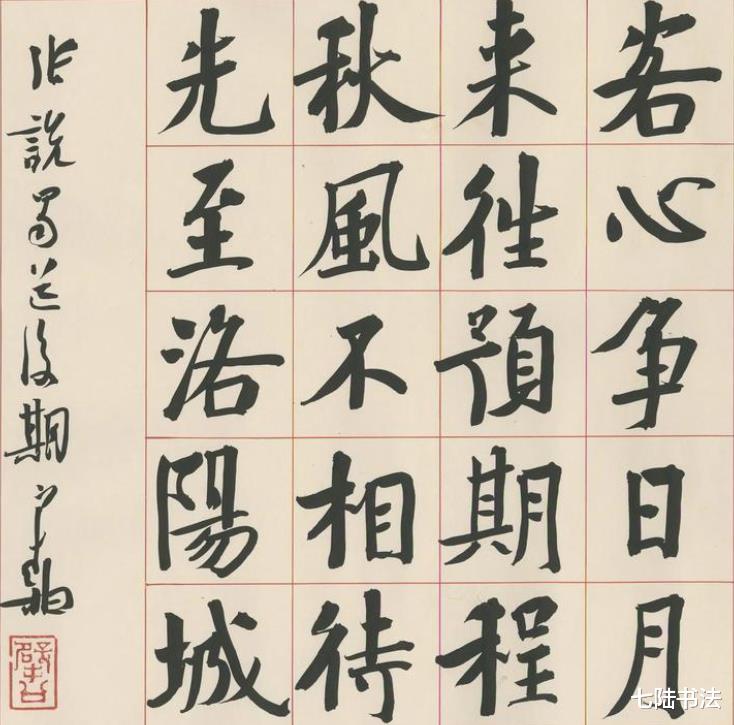 客心争日月
来徃預期程
秋風不相待
先至洛陽城
张說蜀道後期
七陆书法